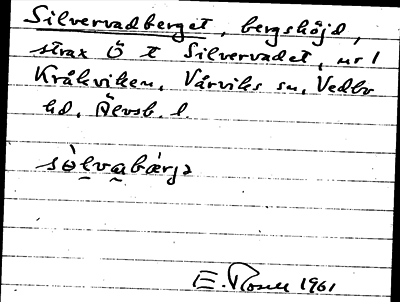 Silvervadberget, bergshöjd,
strax Ö t Silvervadet, nr 1
Kråkviken, Vårviks sn, Vedbo
hd, Älvsb. l.
sølvabærjə
E. Rosell 1961